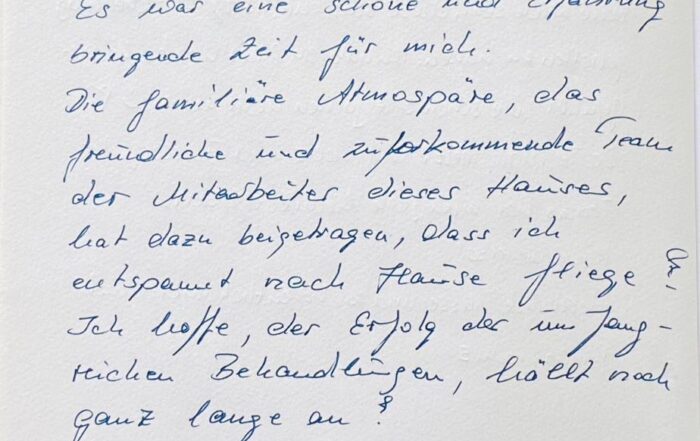 Es war eine schöne und Erfahrung
bringende Zeit für mich.
Die familiäre Atmospäre, das
freundliche und zuforkommende Team
der Mitarbeiter dieses Hauses,
hat dazu beigetragen, dass ich
entspannt nach Hause fliege
Ich hoffe, der Erfolg der umfang-
reichen Behandlungen, hällt noch
ganz lange an!